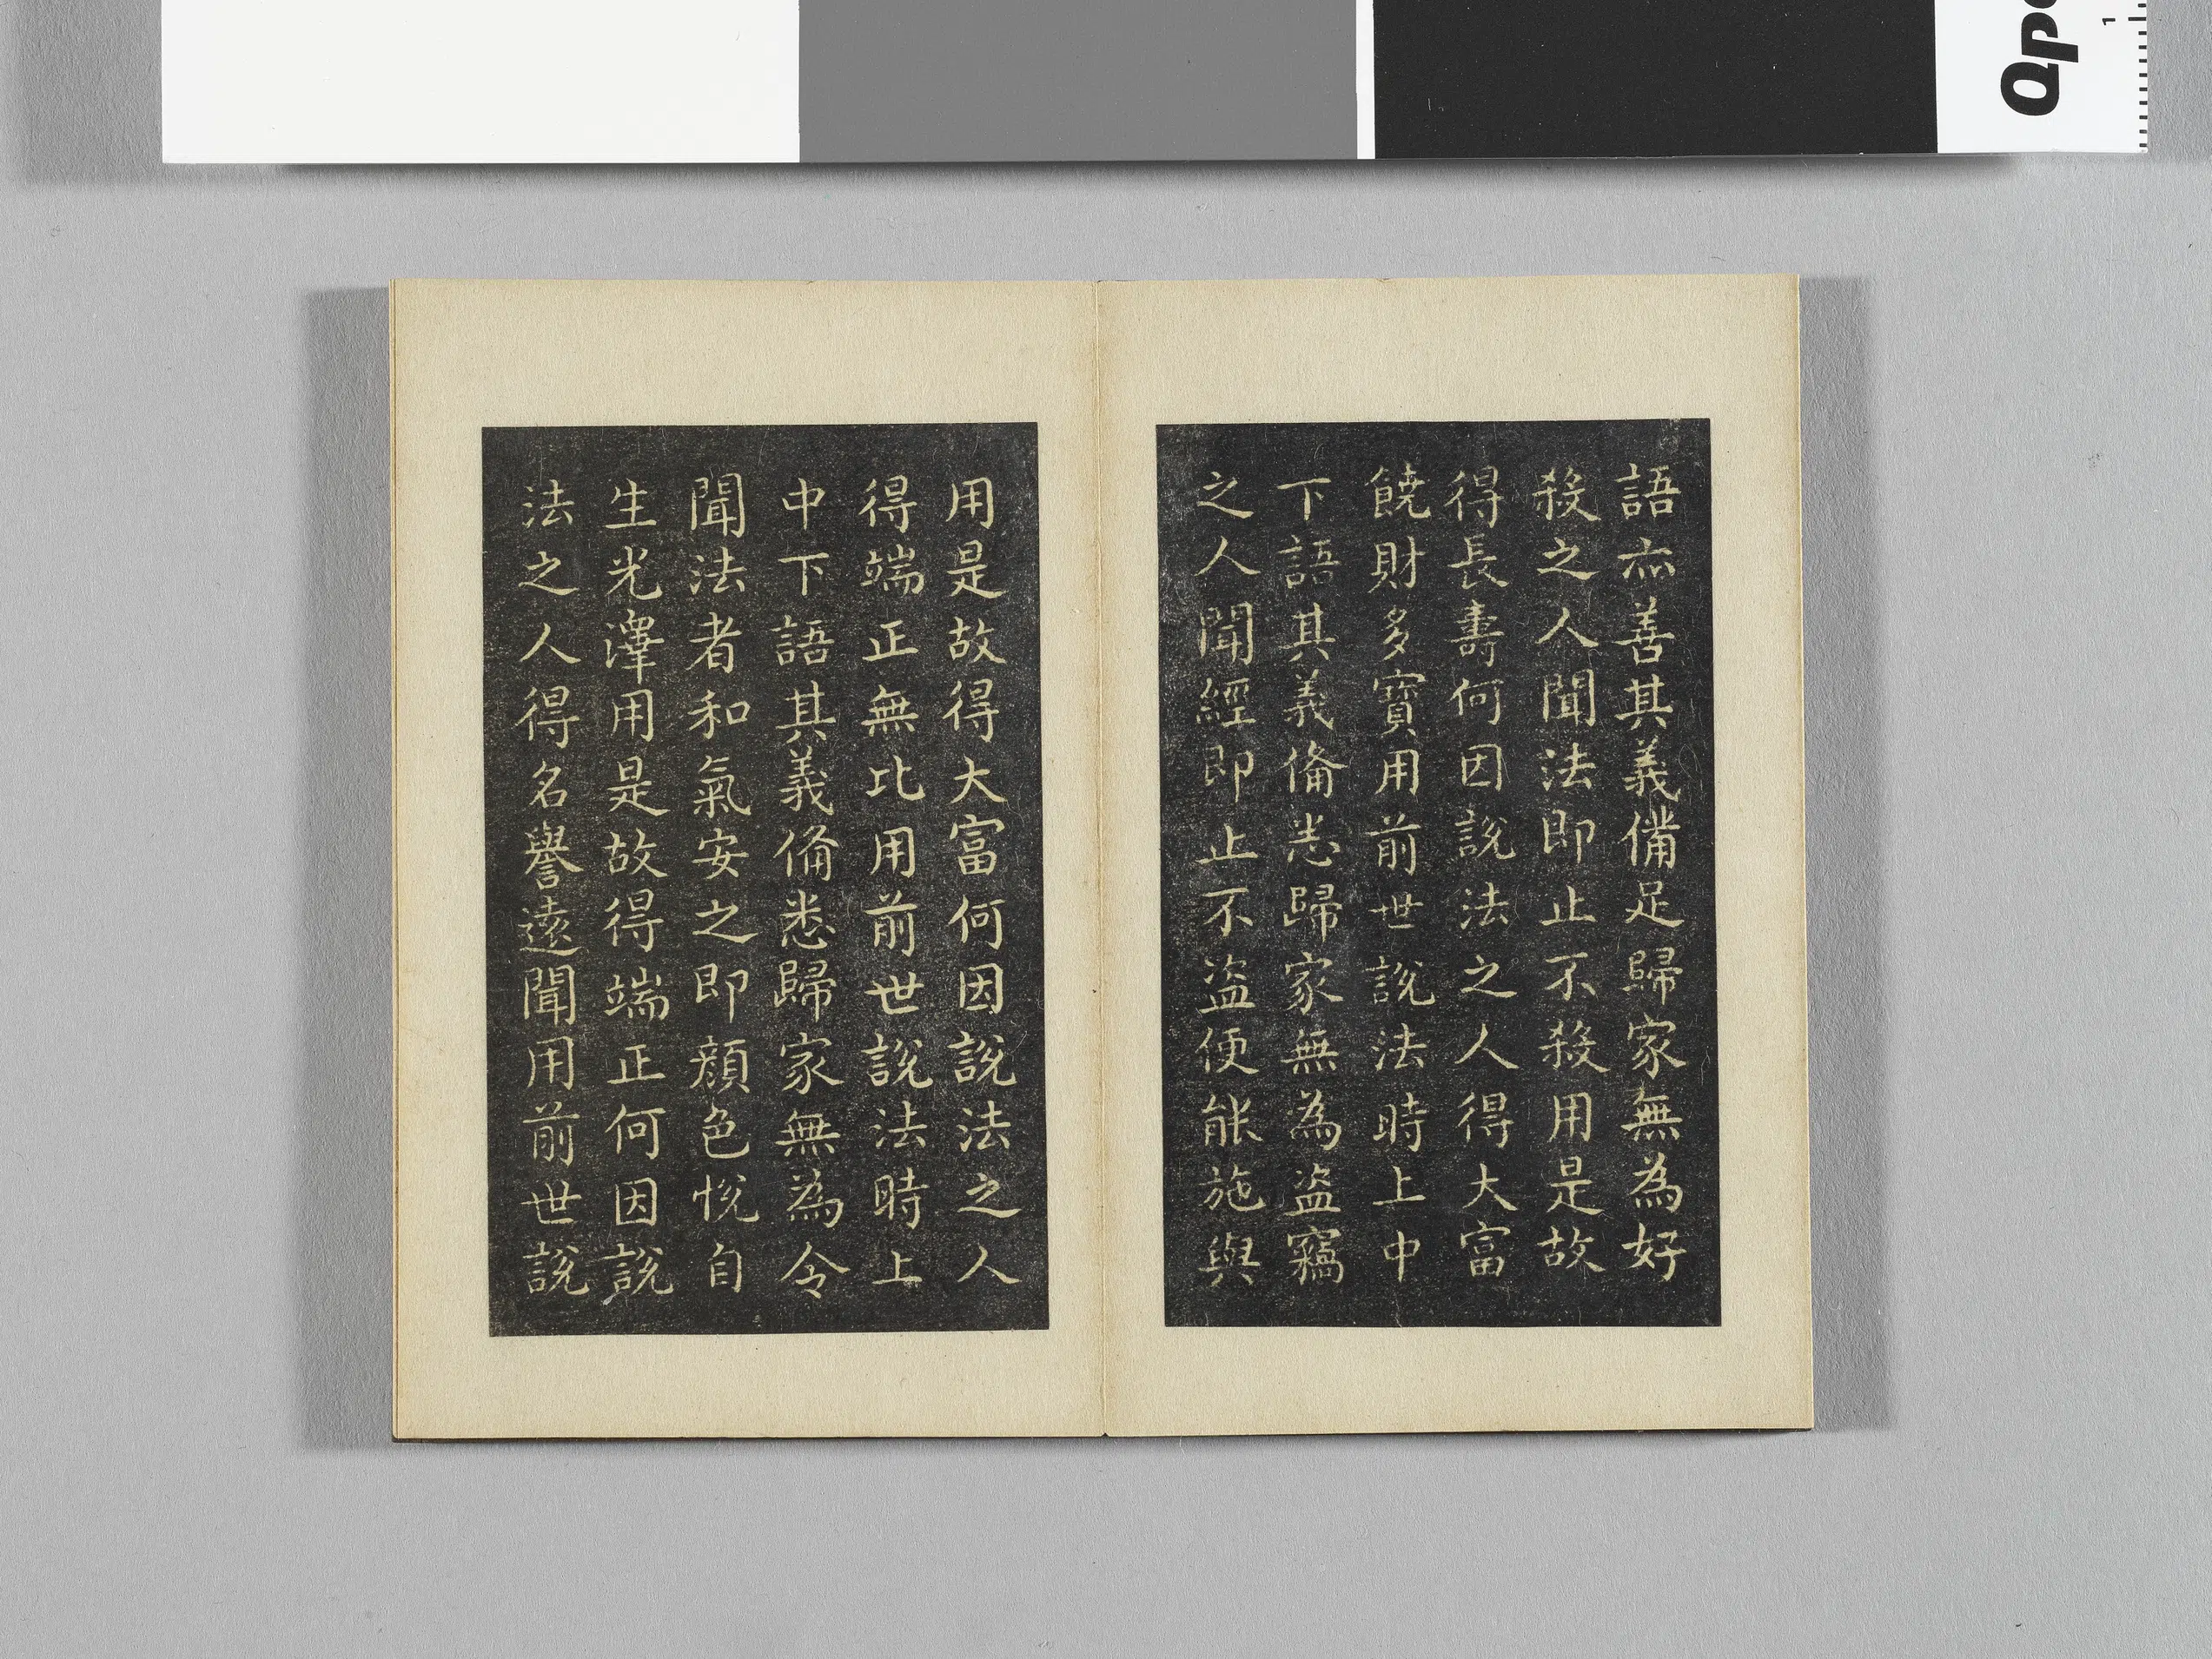 語亦善其義備足歸家無為好
殺之人聞法即止不殺用是故
得長壽何因說法之人得大富
饒財多寶用前世說法時上中
下語其義俻悉歸家無為盗竊
之人聞經即止不盗便能施與
用是故得大富何因說法之人
得端正無比用前世說法時上
中下語其義俻悉歸家無為令
聞法者和氣安之即顏色悅自
生光澤用是故得端正何因說
法之人得名譽遠聞用前世說
1